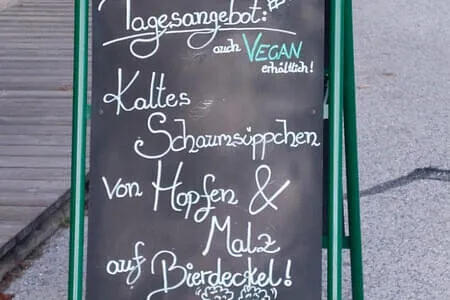 Tagesangebot:
auch VEGAN
erhältlich!
Kaltes
Schaumsüppchen
von Hopfen &
Malz
auf Bierdeckel!